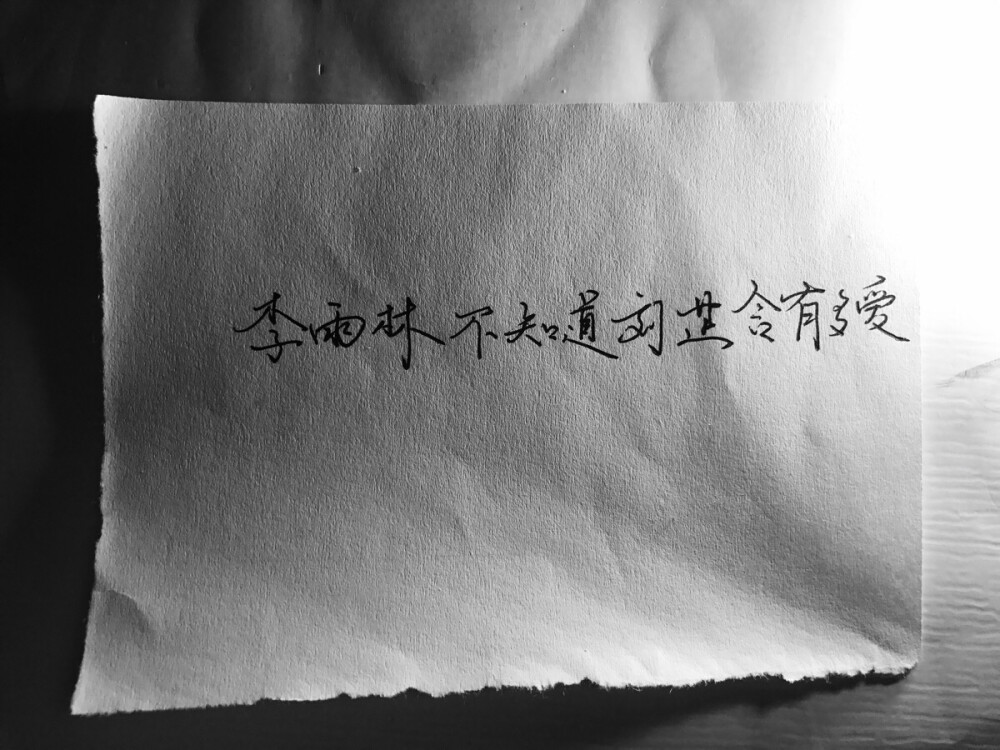 李雨林不知道刘芷含有多爱